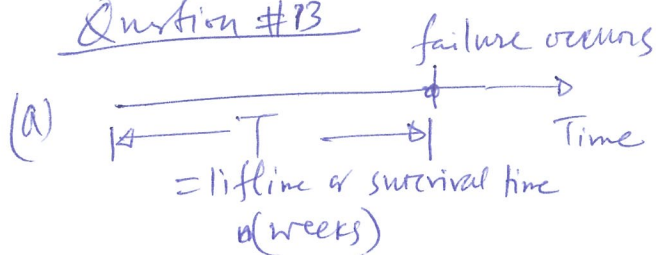 Question #13
failure occurs
(a)
T
Time
= lifetime or survival time
(weeks)